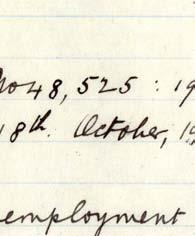 No 48,525 : 19
18th October, 19
employment